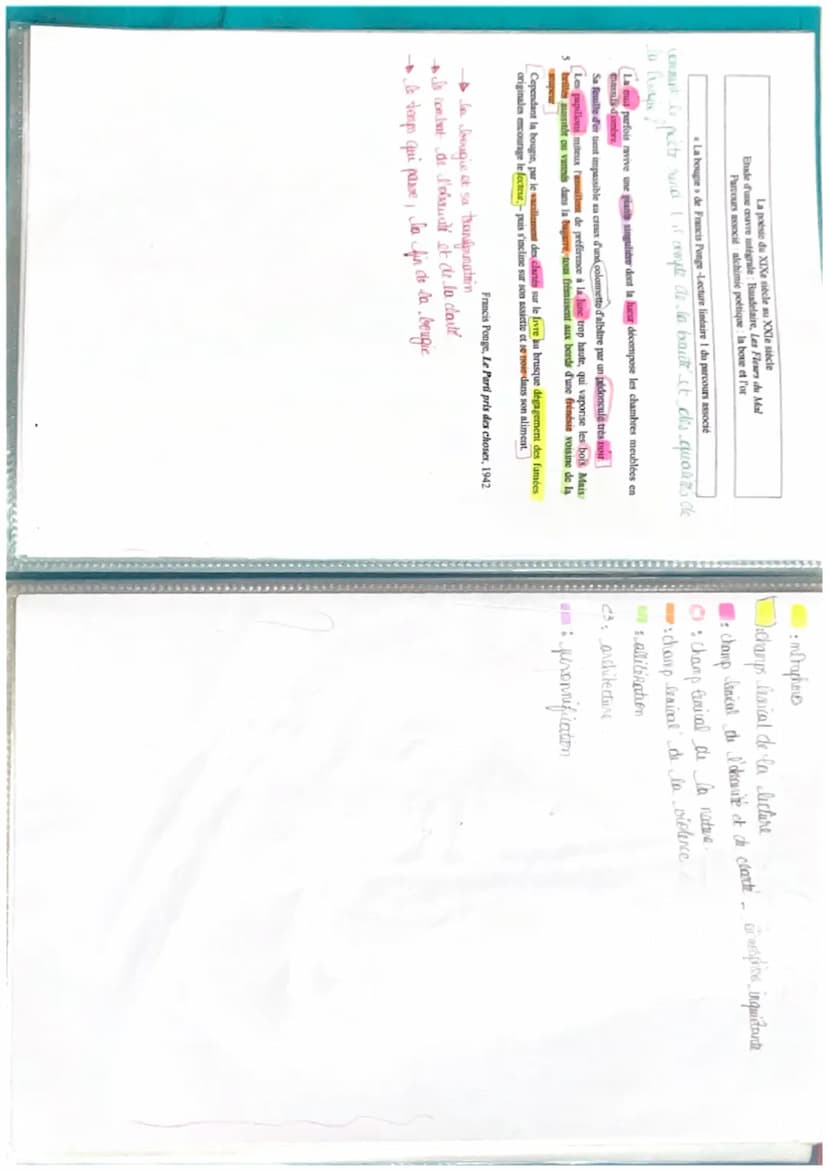 La poésie du XIXe siècle au XXIe siècle
Etude d'une œuvre intégrale : Baudelaire, Les Fleurs du Mal
Parcours associé : alchimie poétique : la boue et l'or
« La bougie » de Francis Ponge -Lecture linéaire 1 du parcours associé
comment le poète rend il compte de la beauté et des qualités de
la bougie ?
La nuit parfois ravive une plante singulière dont la lueur décompose les chambres meublées en
massifs d'ombre.
Sa feuille d'or tient impassible au creux d'une colonnette d'albâtre par un pédoncule très noir.
Les papillons miteux l'assaillent de préférence à la lune trop haute, qui vaporise les bois. Mais
5 brûlés aussitôt ou vannés dans la bagarre, tous frémissent aux bords d'une frénésie voisine de la
stupeur.
Cependant la bougie, par le vacillement des clartés sur le livre au brusque dégagement des fumées
originales encourage le lecteur, – puis s'incline sur son assiette et se noie dans son aliment.
Francis Ponge, Le Parti pris des choses, 1942
→ la bougie et sa transformation
→ le combat de l'obscurité et de la clarté
→ le temps qui passe, la fin de la bougie
: métaphores
: champs lexical de la lecture
: champ lexical de l'obscurité et de clarté - atmosphère inquiétante
: champ lexical de la nature
: champ lexical de la violence
: allitération
: architecture
: personnification